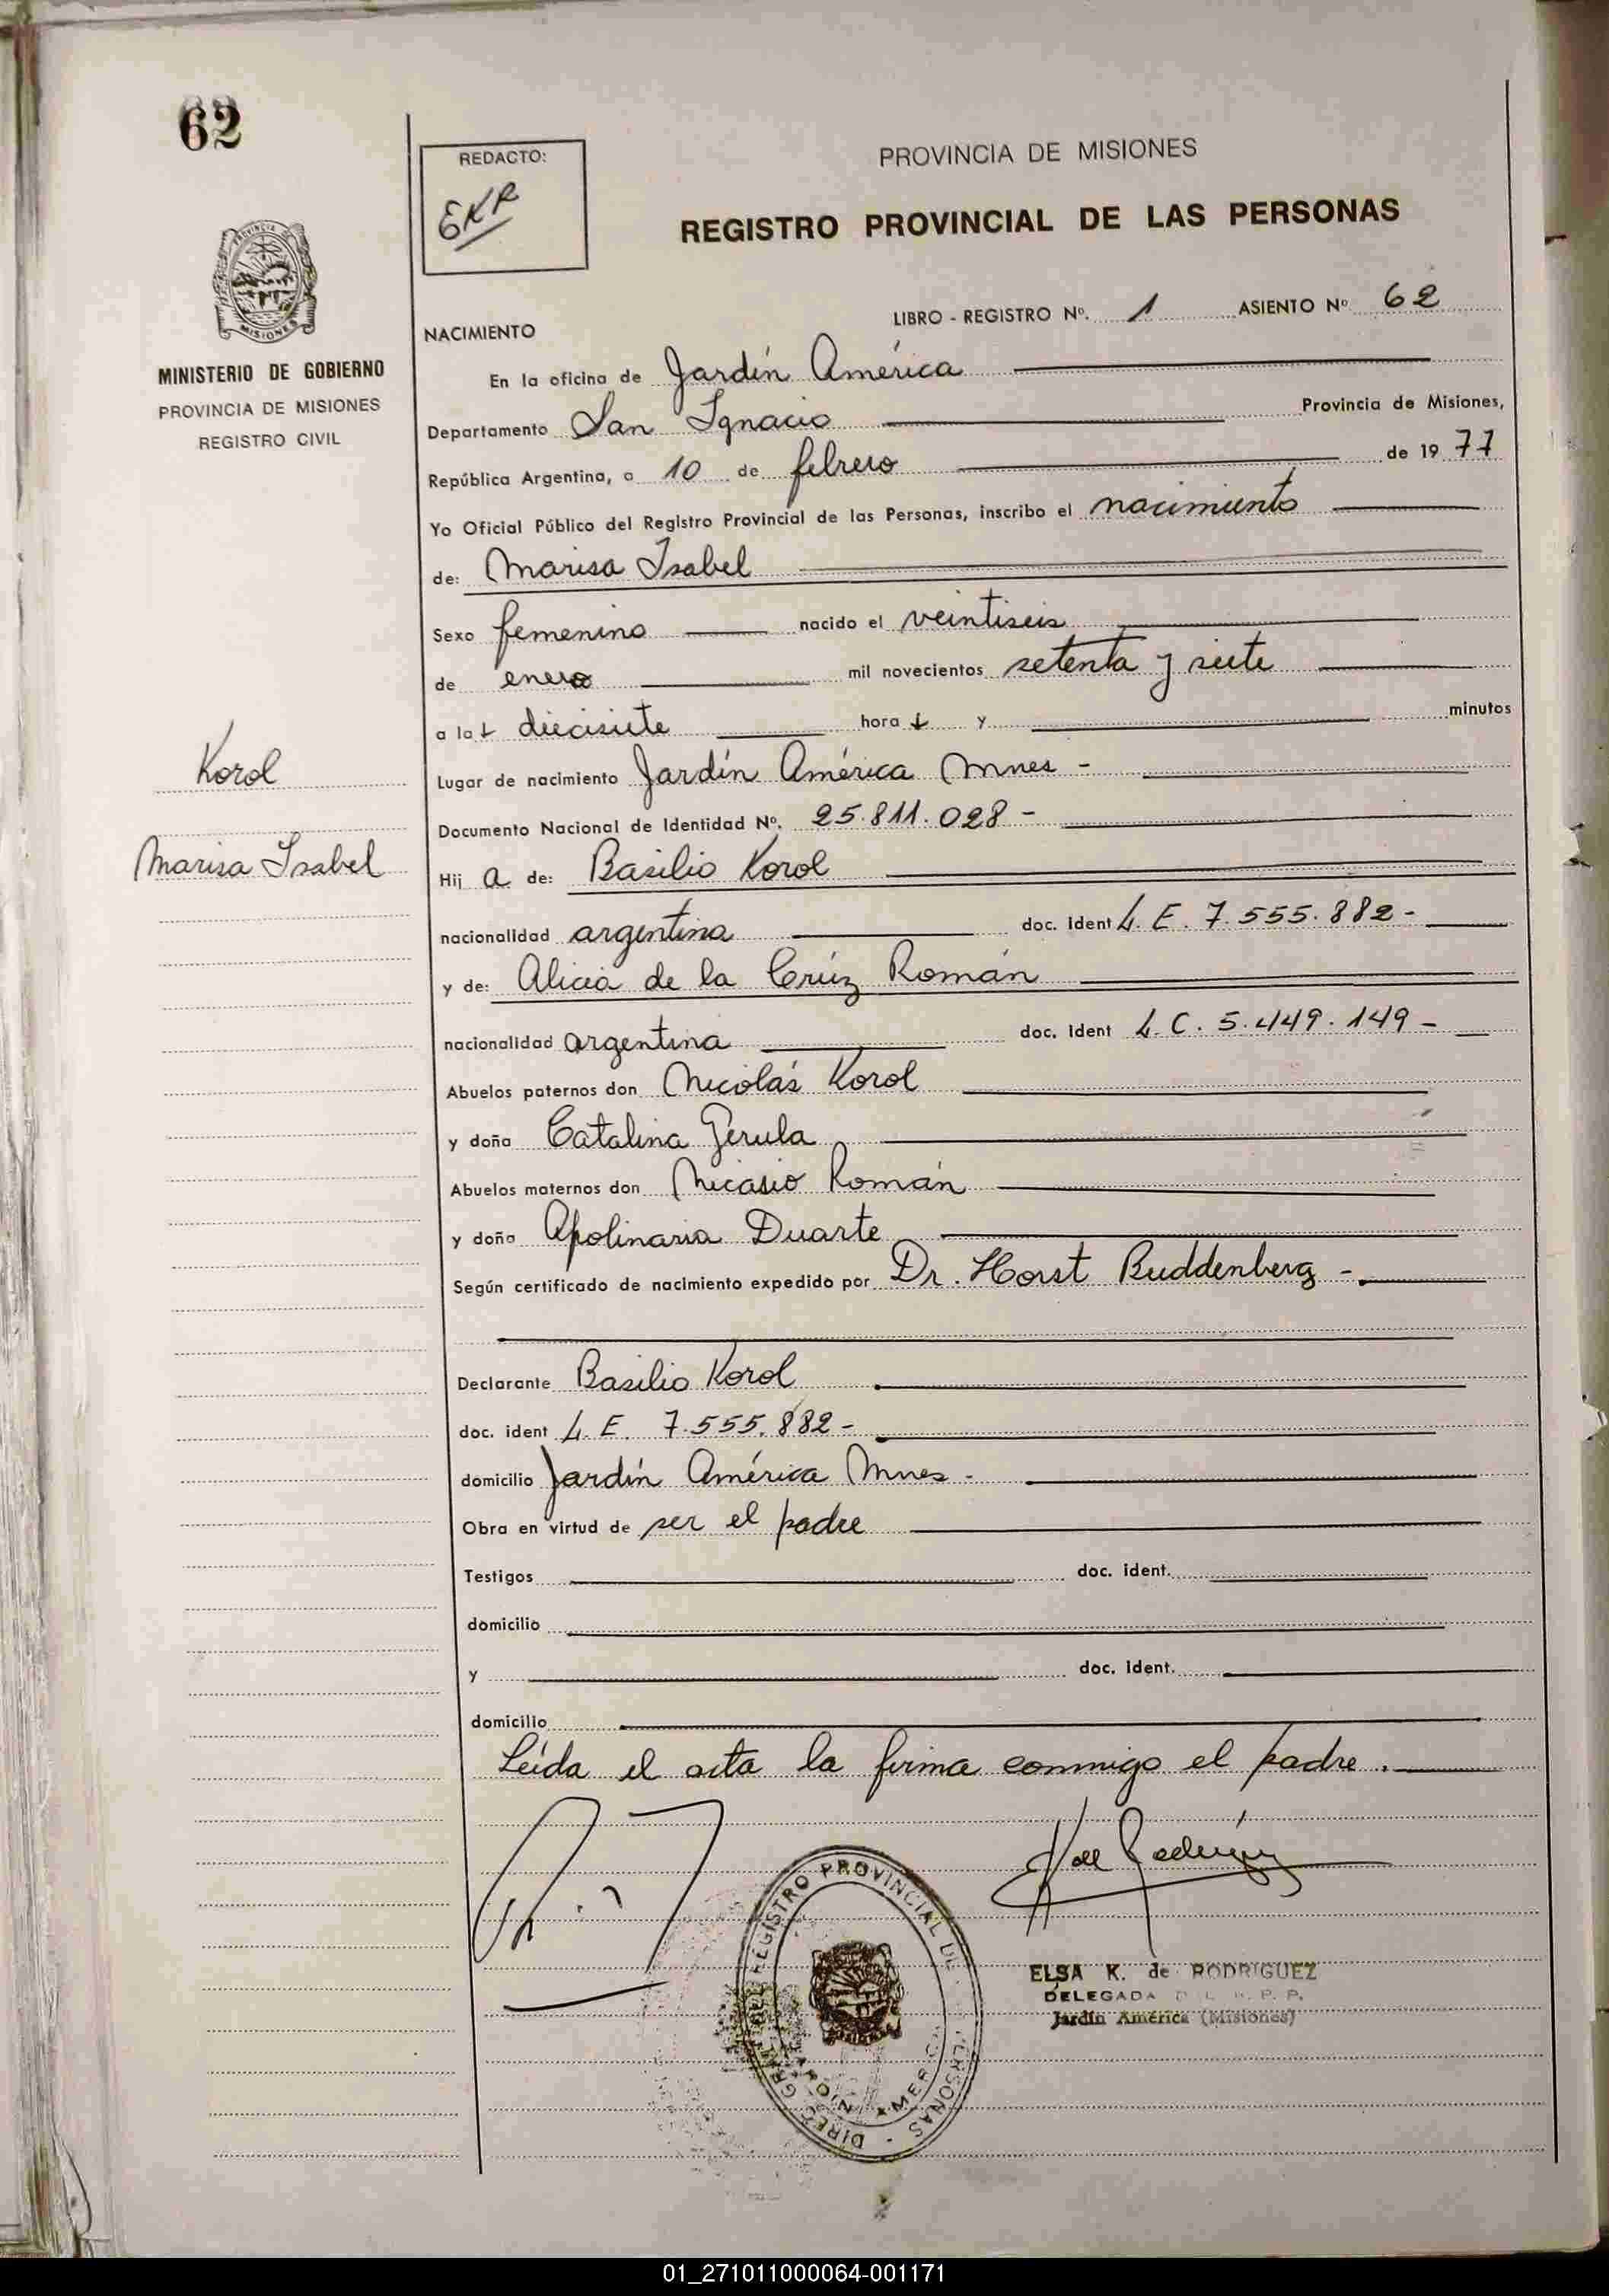 62
REDACTO:
EKR
PROVINCIA DE MISIONES
REGISTRO PROVINCIAL DE LAS PERSONAS
MISIONES
MINISTERIO DE GOBIERNO
PROVINCIA DE MISIONES
REGISTRO CIVIL
LIBRO - REGISTRO Nº. 1 ASIENTO Nº 62
NACIMIENTO
En la oficina de Jardín América
Departamento San Ignacio Provincia de Misiones,
República Argentina, a 10 de febrero de 1977
Yo Oficial Público del Registro Provincial de las Personas, inscribo el nacimiento
de: Marisa Isabel
Sexo femenino nacido el veintiseis
de enero mil novecientos setenta y siete
a la s diecisiete hora s y minutos
Korol
Lugar de nacimiento Jardín América Mnes -
Documento Nacional de Identidad Nº. 25.811.028 -
Marisa Isabel
Hij a de: Basilio Korol
nacionalidad argentina doc. ident L. E. 7.555.882 -
y de: Alicia de la Crúz Román
nacionalidad argentina doc. ident L. C. 5.449.149 -
Abuelos paternos don Nicolás Korol
y doña Catalina Gerula
Abuelos maternos don Nicasio Román
y doña Apolinaria Duarte
Según certificado de nacimiento expedido por Dr. Horst Buddenberg -
Declarante Basilio Korol
doc. ident L. E. 7.555.882 -
domicilio Jardín América Mnes -
Obra en virtud de ser el padre
Testigos doc. ident.
domicilio
y doc. ident.
domicilio
Leída el acta la firma conmigo el padre.
REGISTRO PROVINCIAL DE PERSONAS
JARDIN AMERICA
ELSA K. de RODRIGUEZ
DELEGADA P. P.
Jardín América (Misiones)
01_271011000064-001171